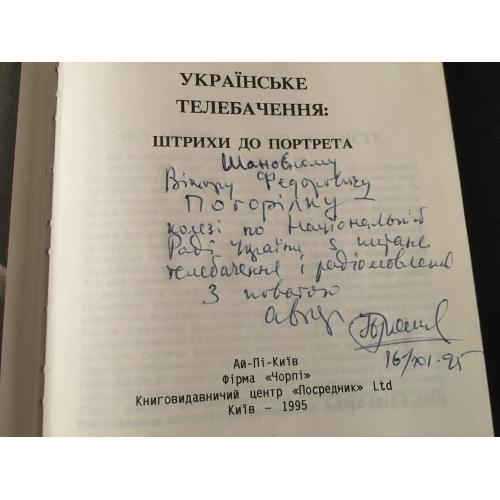 УКРАЇНСЬКЕ
ТЕЛЕБАЧЕННЯ:
ШТРИХИ ДО ПОРТРЕТА
Шановному
Віктору Федоровичу
Погорілку
колезі по Національній
Раді України з питань
телебачення і радіомовлення
З повагою
автор
16/XI-95
Ай-Пі-Київ
Фірма «Чорлі»
Книговидавничий центр «Посредник» Ltd
Київ – 1995